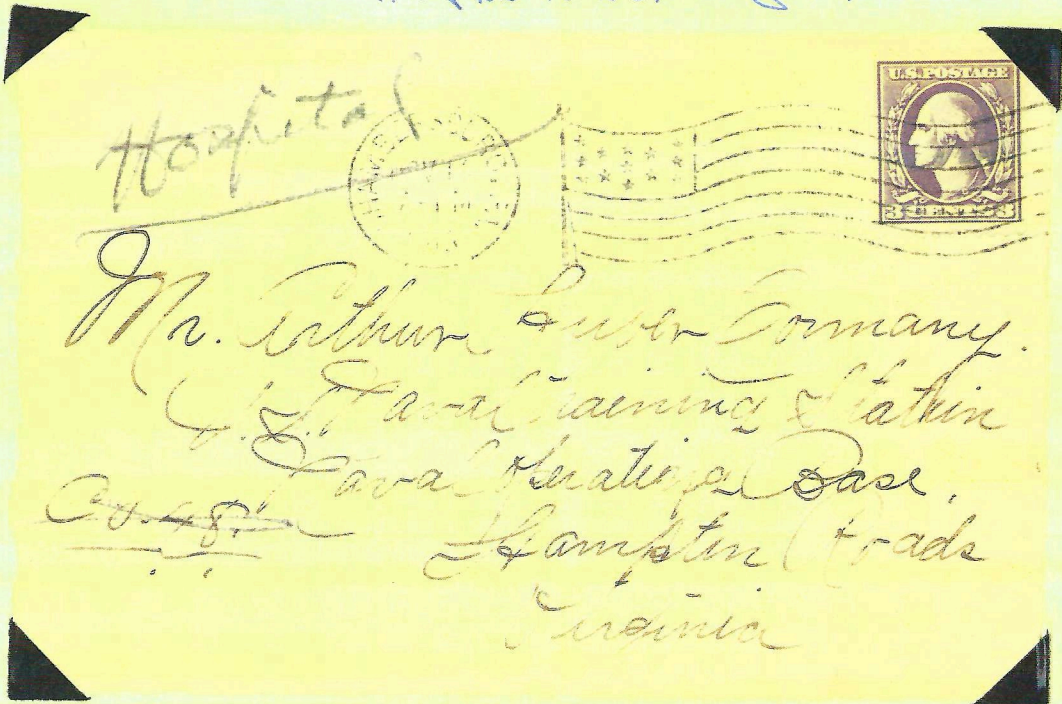 Hospital
U.S. POSTAGE
3 CENTS 3
Mr. Arthur Huber Cormany.
U.S. Naval Training Station
Naval Operating Base,
Co. 48.
Hampton Roads
Virginia